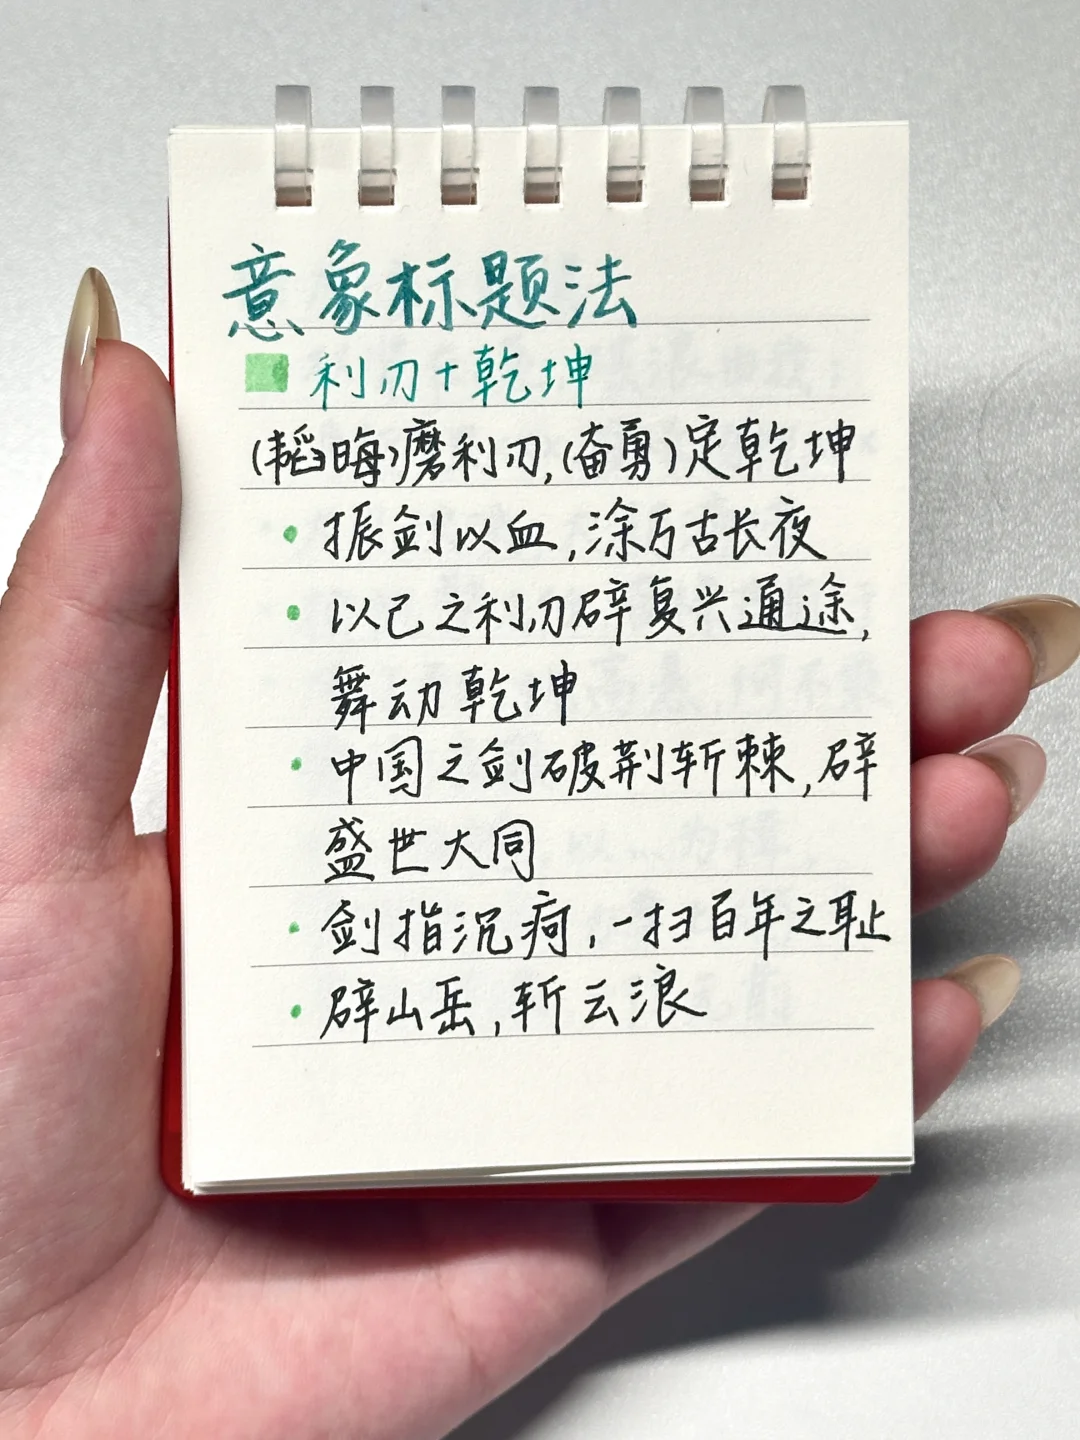 意象标题法
利刃+乾坤
(韬晦)磨利刃,(奋勇)定乾坤
• 振剑以血,涂万古长夜
• 以己之利刃辟复兴通途,
舞动乾坤
• 中国之剑破荆斩棘,辟
盛世大同
• 剑指沉疴,一扫百年之耻
• 辟山岳,斩云浪